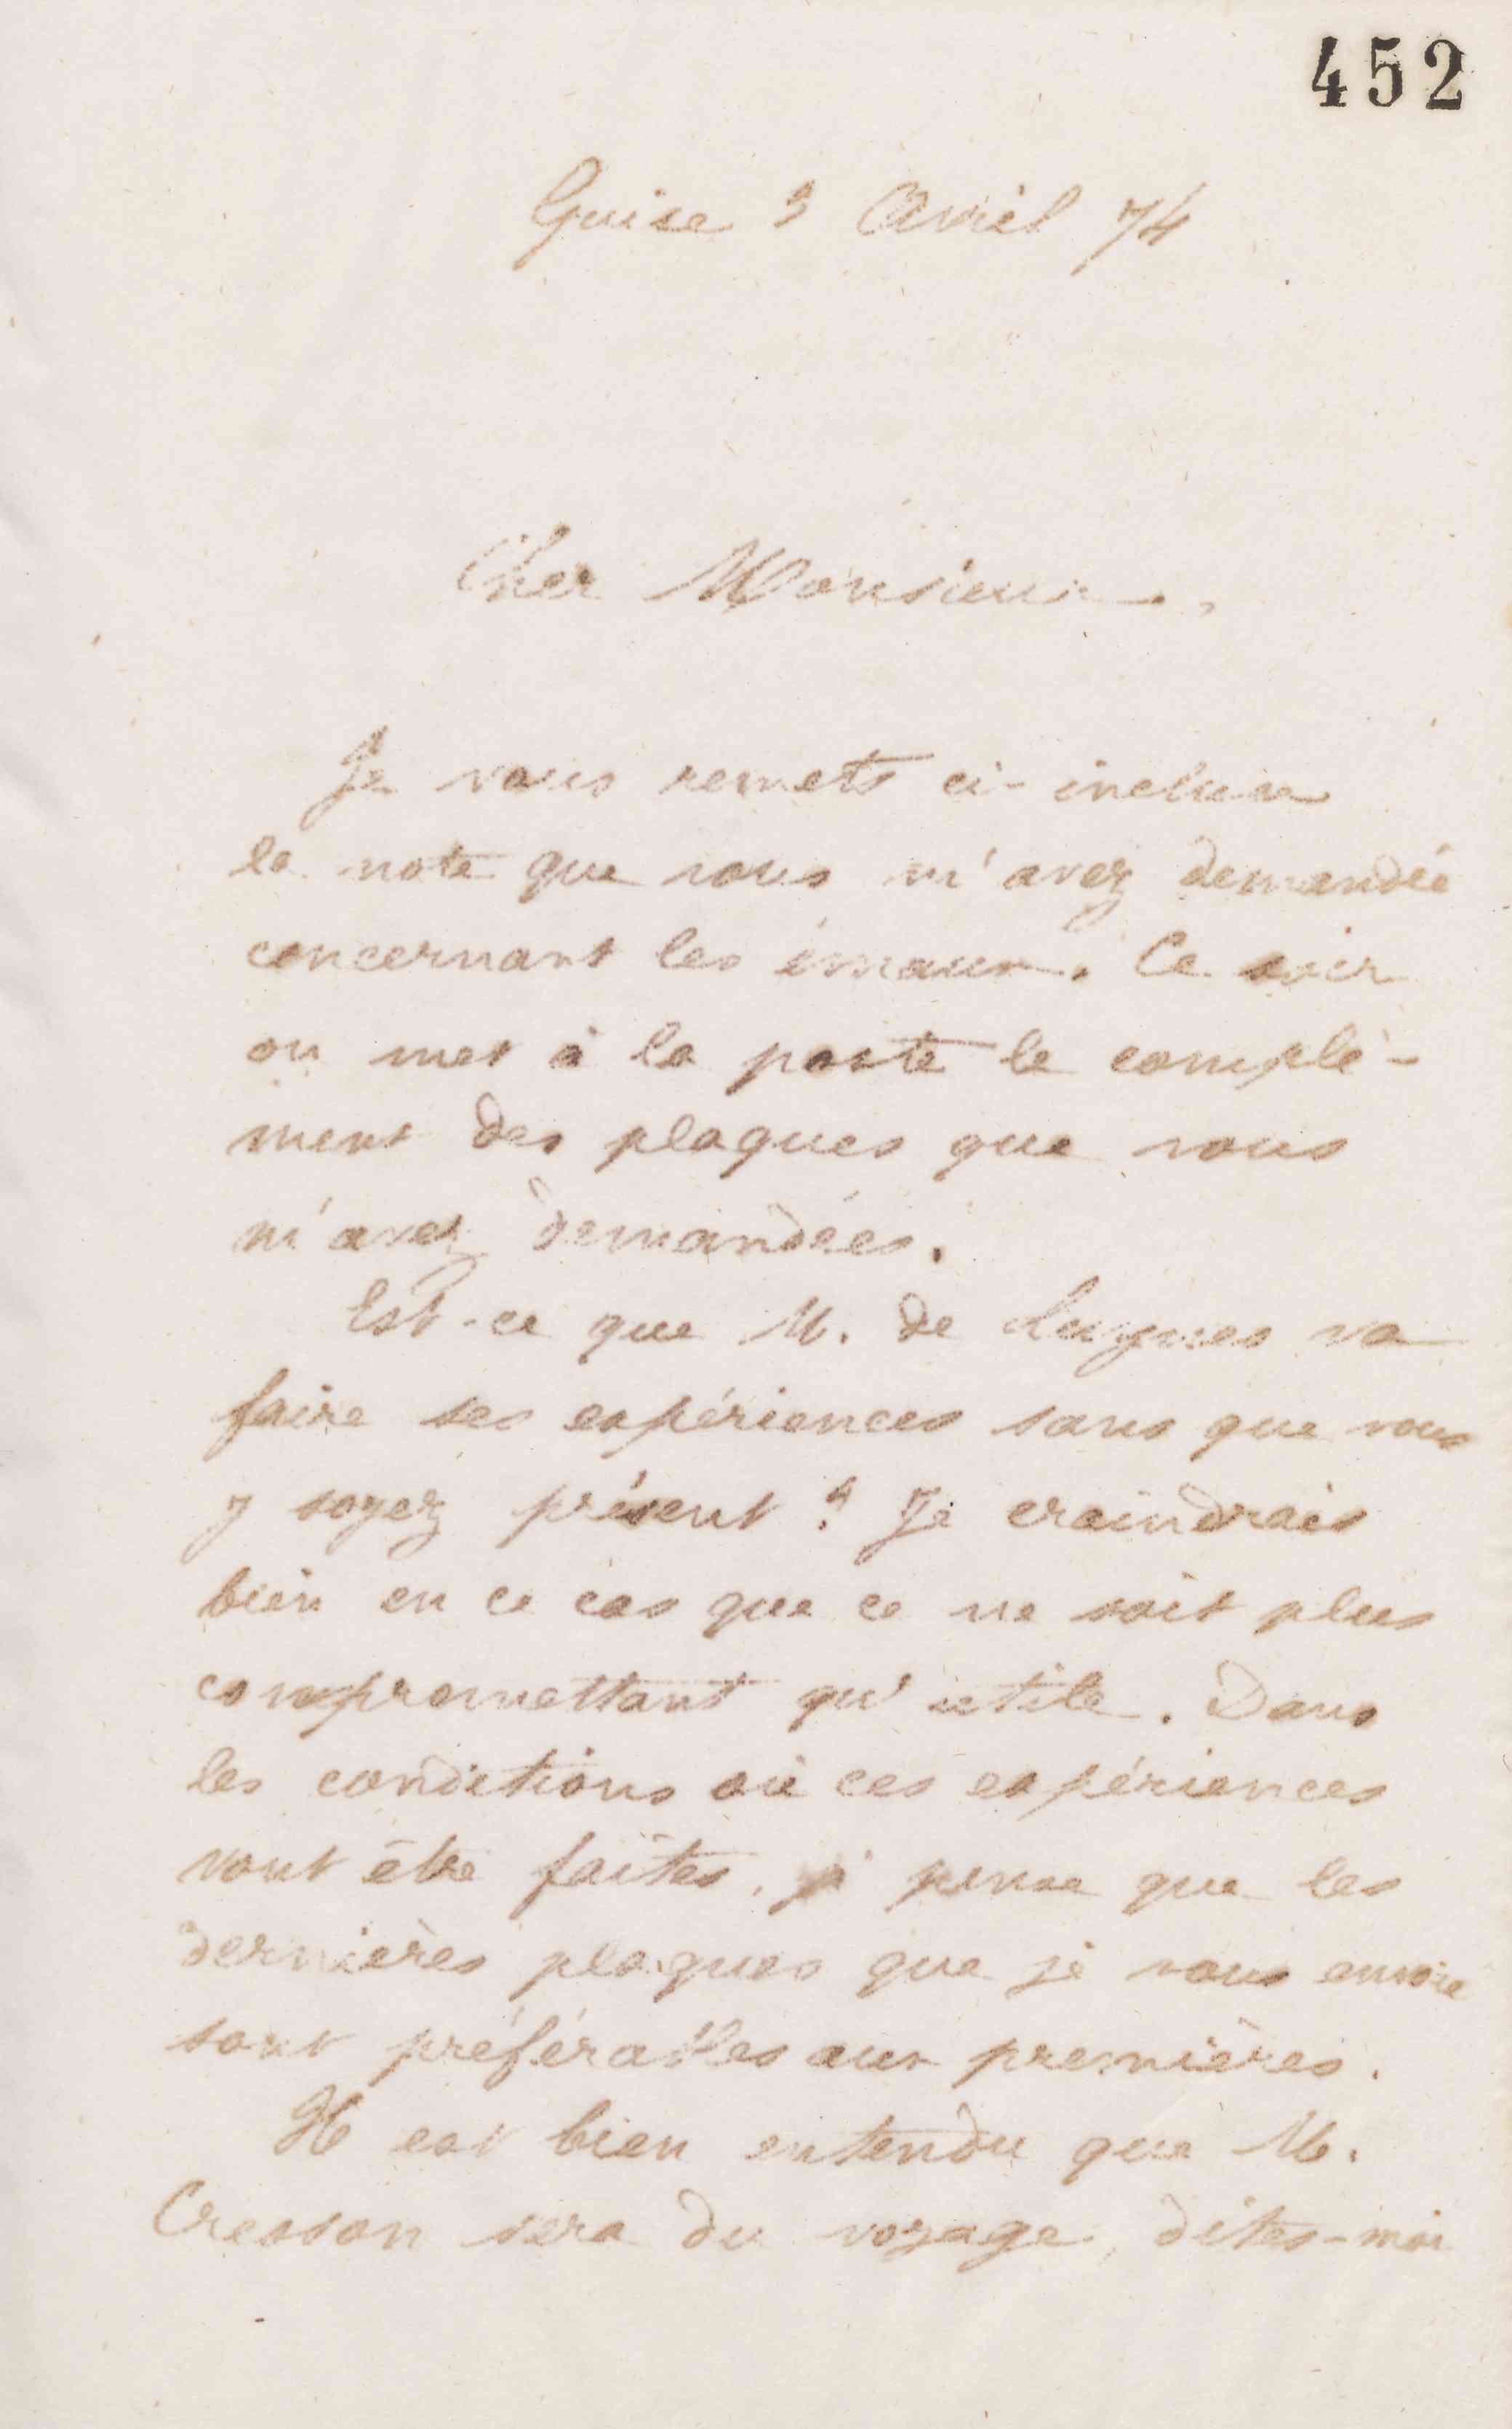 452
Guise 3 Avril 74
Cher Monsieur,
Je vous remets ci-incluse
la note que vous m'avez demandée
concernant les émaux. Ce soir
on met à la poste le complé-
ment des plaques que vous
m'avez demandées.
Est-ce que M. de Luynes va
faire ses expériences sans que vous
y soyez présent ? Je craindrais
bien en ce cas que ce ne soit plus
compromettant qu'utile. Dans
les conditions où ces expériences
vont être faites, je pense que les
dernières plaques que je vous envoie
sont préférables aux premières.
Il est bien entendu que M.
Cresson sera du voyage, dites-moi